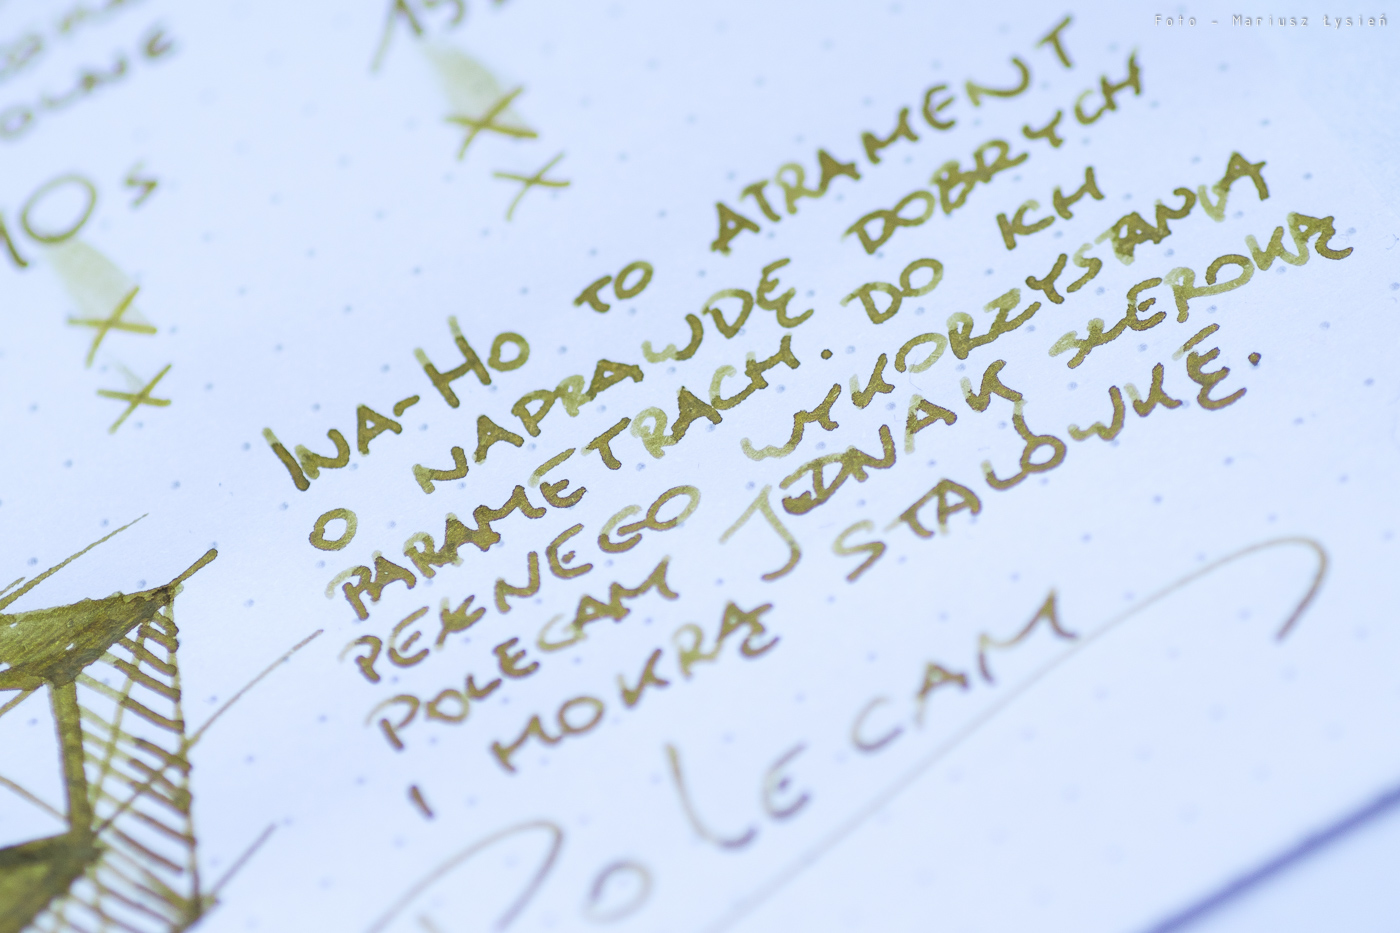 Foto - Mariusz Łysień
10 s
INA-HO TO ATRAMENT
O NAPRAWDĘ DOBRYCH
PARAMETRACH. DO ICH
PEŁNEGO WYKORZYSTANIA
POLECAM JEDNAK SZEROKĄ
I MOKRĄ STALÓWKĘ.
POLECAM